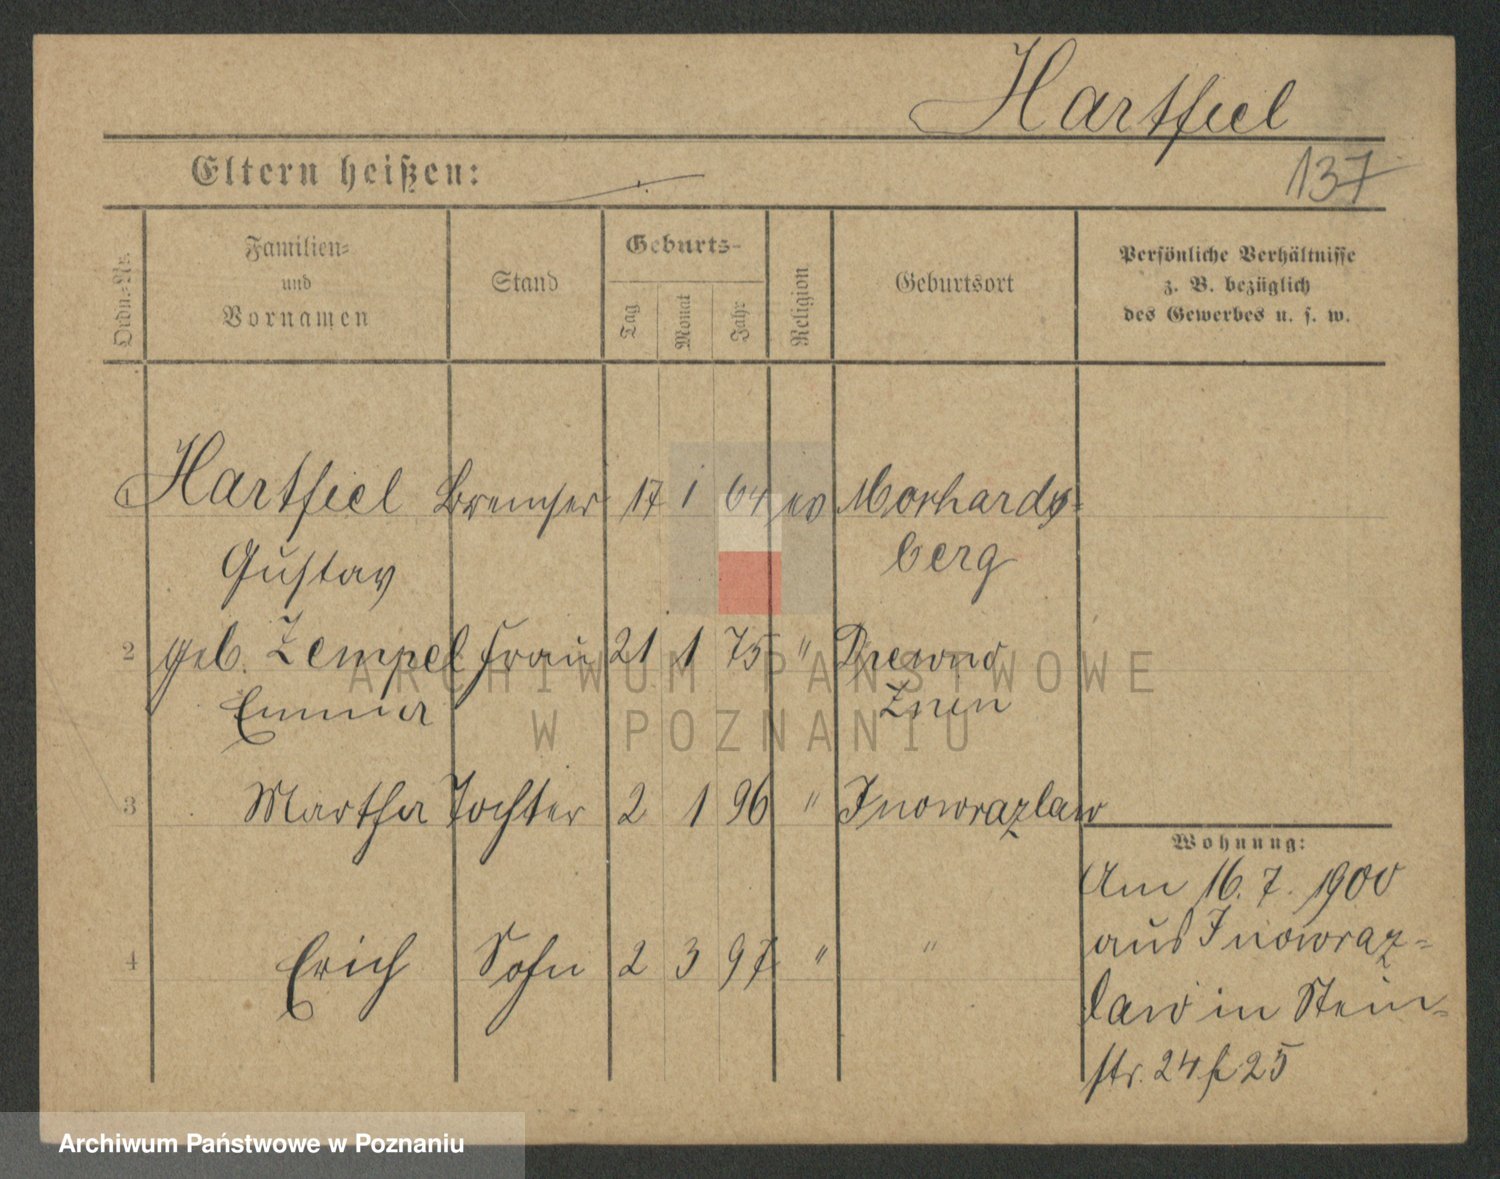 Hartfiel
Eltern heißen:
137
Ordn.-Nr.
Familien-
und
Vornamen
Stand
Geburts-
Tag
Monat
Jahr
Religion
Geburtsort
Persönliche Verhältnisse
z. B. bezüglich
des Gewerbes u. s. w.
Hartfiel Bremser 17 1 64 ev
Gustav berg
2 geb. Zempel Frau 21 1 75 "
Emma Znin
3 Martha Tochter 2 1 96 " Inowrazlaw
4 Erich Sohn 2 3 97 " "
Wohnung:
Am 16. 7. 1900
aus Inowraz=
law in Stein=
str. 24 25
ARCHIWUM PAŃSTWOWE
W POZNANIU
Archiwum Państwowe w Poznaniu